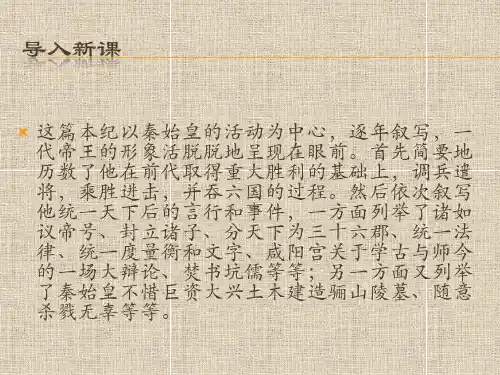 导入新课
这篇本纪以秦始皇的活动为中心，逐年叙写，一
代帝王的形象活脱脱地呈现在眼前。首先简要地
历数了他在前代取得重大胜利的基础上，调兵遣
将，乘胜进击，并吞六国的过程。然后依次叙写
他统一天下后的言行和事件，一方面列举了诸如
议帝号、封立诸子、分天下为三十六郡、统一法
律、统一度量衡和文字、咸阳宫关于学古与师今
的一场大辩论、焚书坑儒等等；另一方面又列举
了秦始皇不惜巨资大兴土木建造骊山陵墓、随意
杀戮无辜等等。